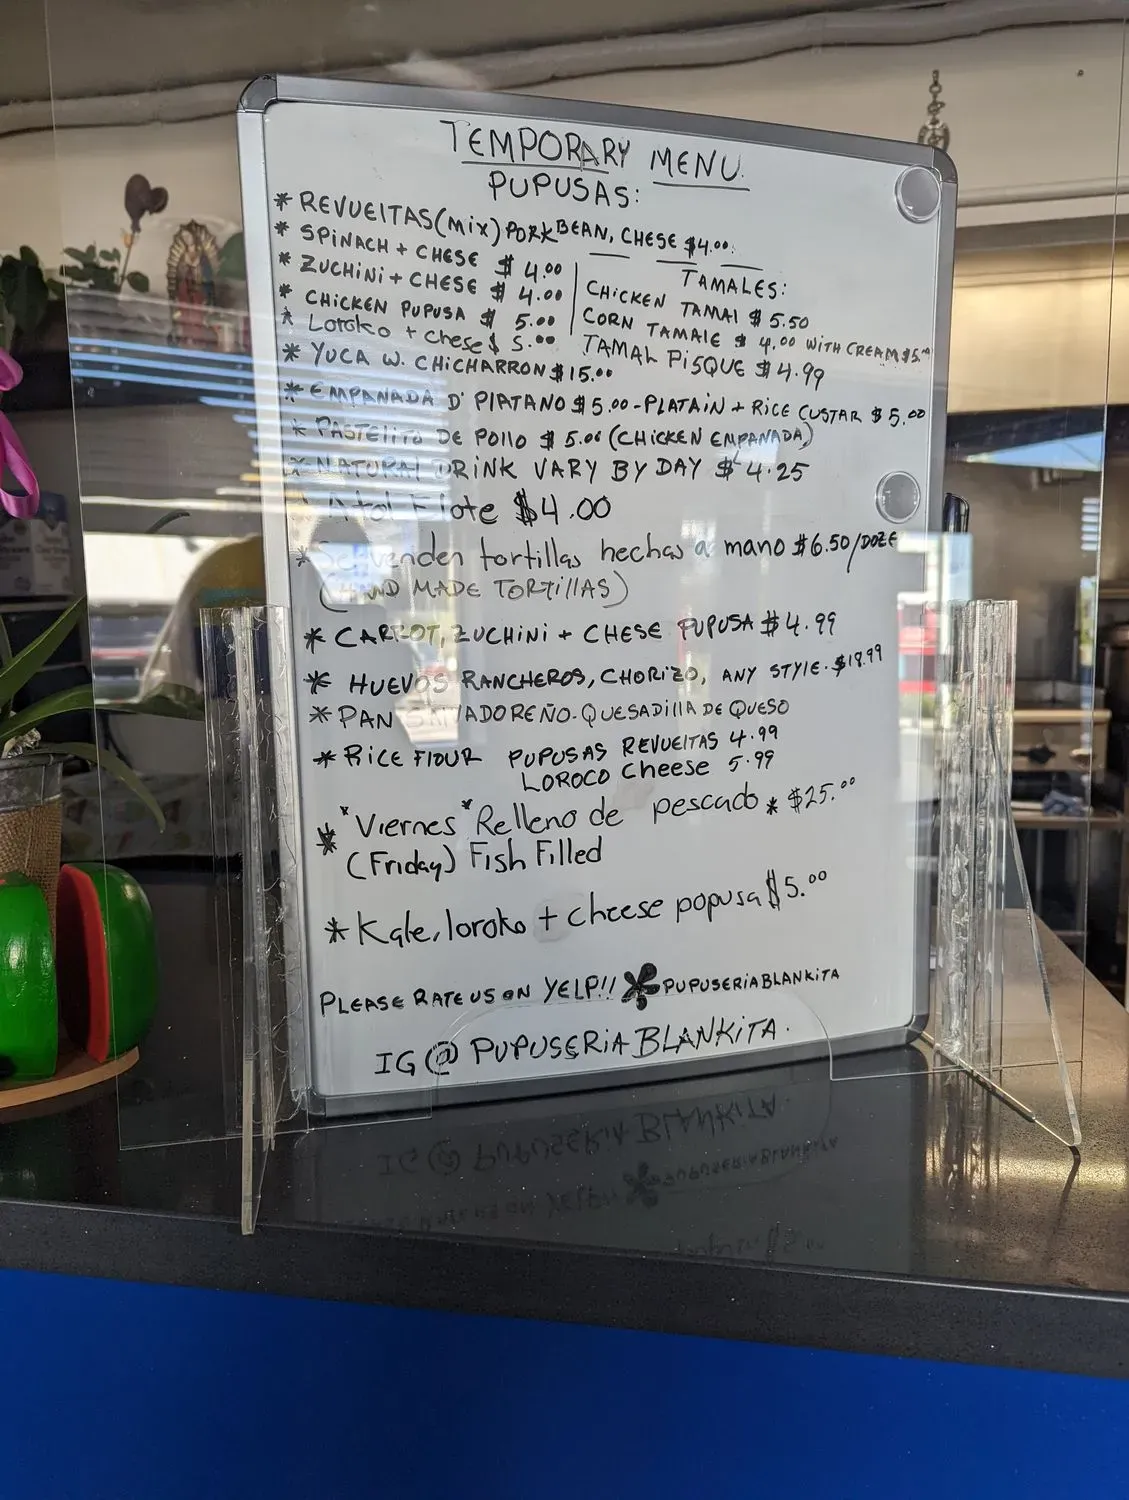 TEMPORARY MENU.
PUPUSAS:
* REVUELTAS (mix) PORK BEAN, CHESE $4.00.
* SPINACH + CHESE $ 4.00
* ZUCHINI + CHESE $ 4.00
* CHICKEN PUPUSA $ 5.00
* Loroko + chese $ 5.00
TAMALES:
CHICKEN TAMAL $ 5.50
CORN TAMALE $ 4.00 WITH CREAM $5.00
TAMAL PISQUE $ 4.99
* YUCA W. CHICHARRON $ 15.00
* EMPANADA D' PLATANO $ 5.00 - PLATAIN + RICE CUSTAR $ 5.00
* PASTELITO DE POLLO $ 5.00 (CHICKEN EMPANADA)
* NATURAL DRINK VARY BY DAY $ 4.25
* Atol Elote $4.00
* Se venden tortillas hechas a mano $6.50/DOZE
(HAND MADE TORTILLAS)
* CARROT, ZUCHINI + CHESE PUPUSA $ 4.99
* HUEVOS RANCHEROS, CHORIZO, ANY STYLE. $18.99
* PAN SALVADOREÑO-QUESADILLA DE QUESO
* RICE FLOUR PUPUSAS REVUELTAS 4.99
LOROCO Cheese 5.99
* "Viernes" Relleno de pescado * $25.00
(Friday) Fish Filled
* Kale, loroko + cheese popusa $5.00
PLEASE RATE US ON YELP!! PUPUSERIA BLANKITA
IG @ PUPUSERIA BLANKITA.